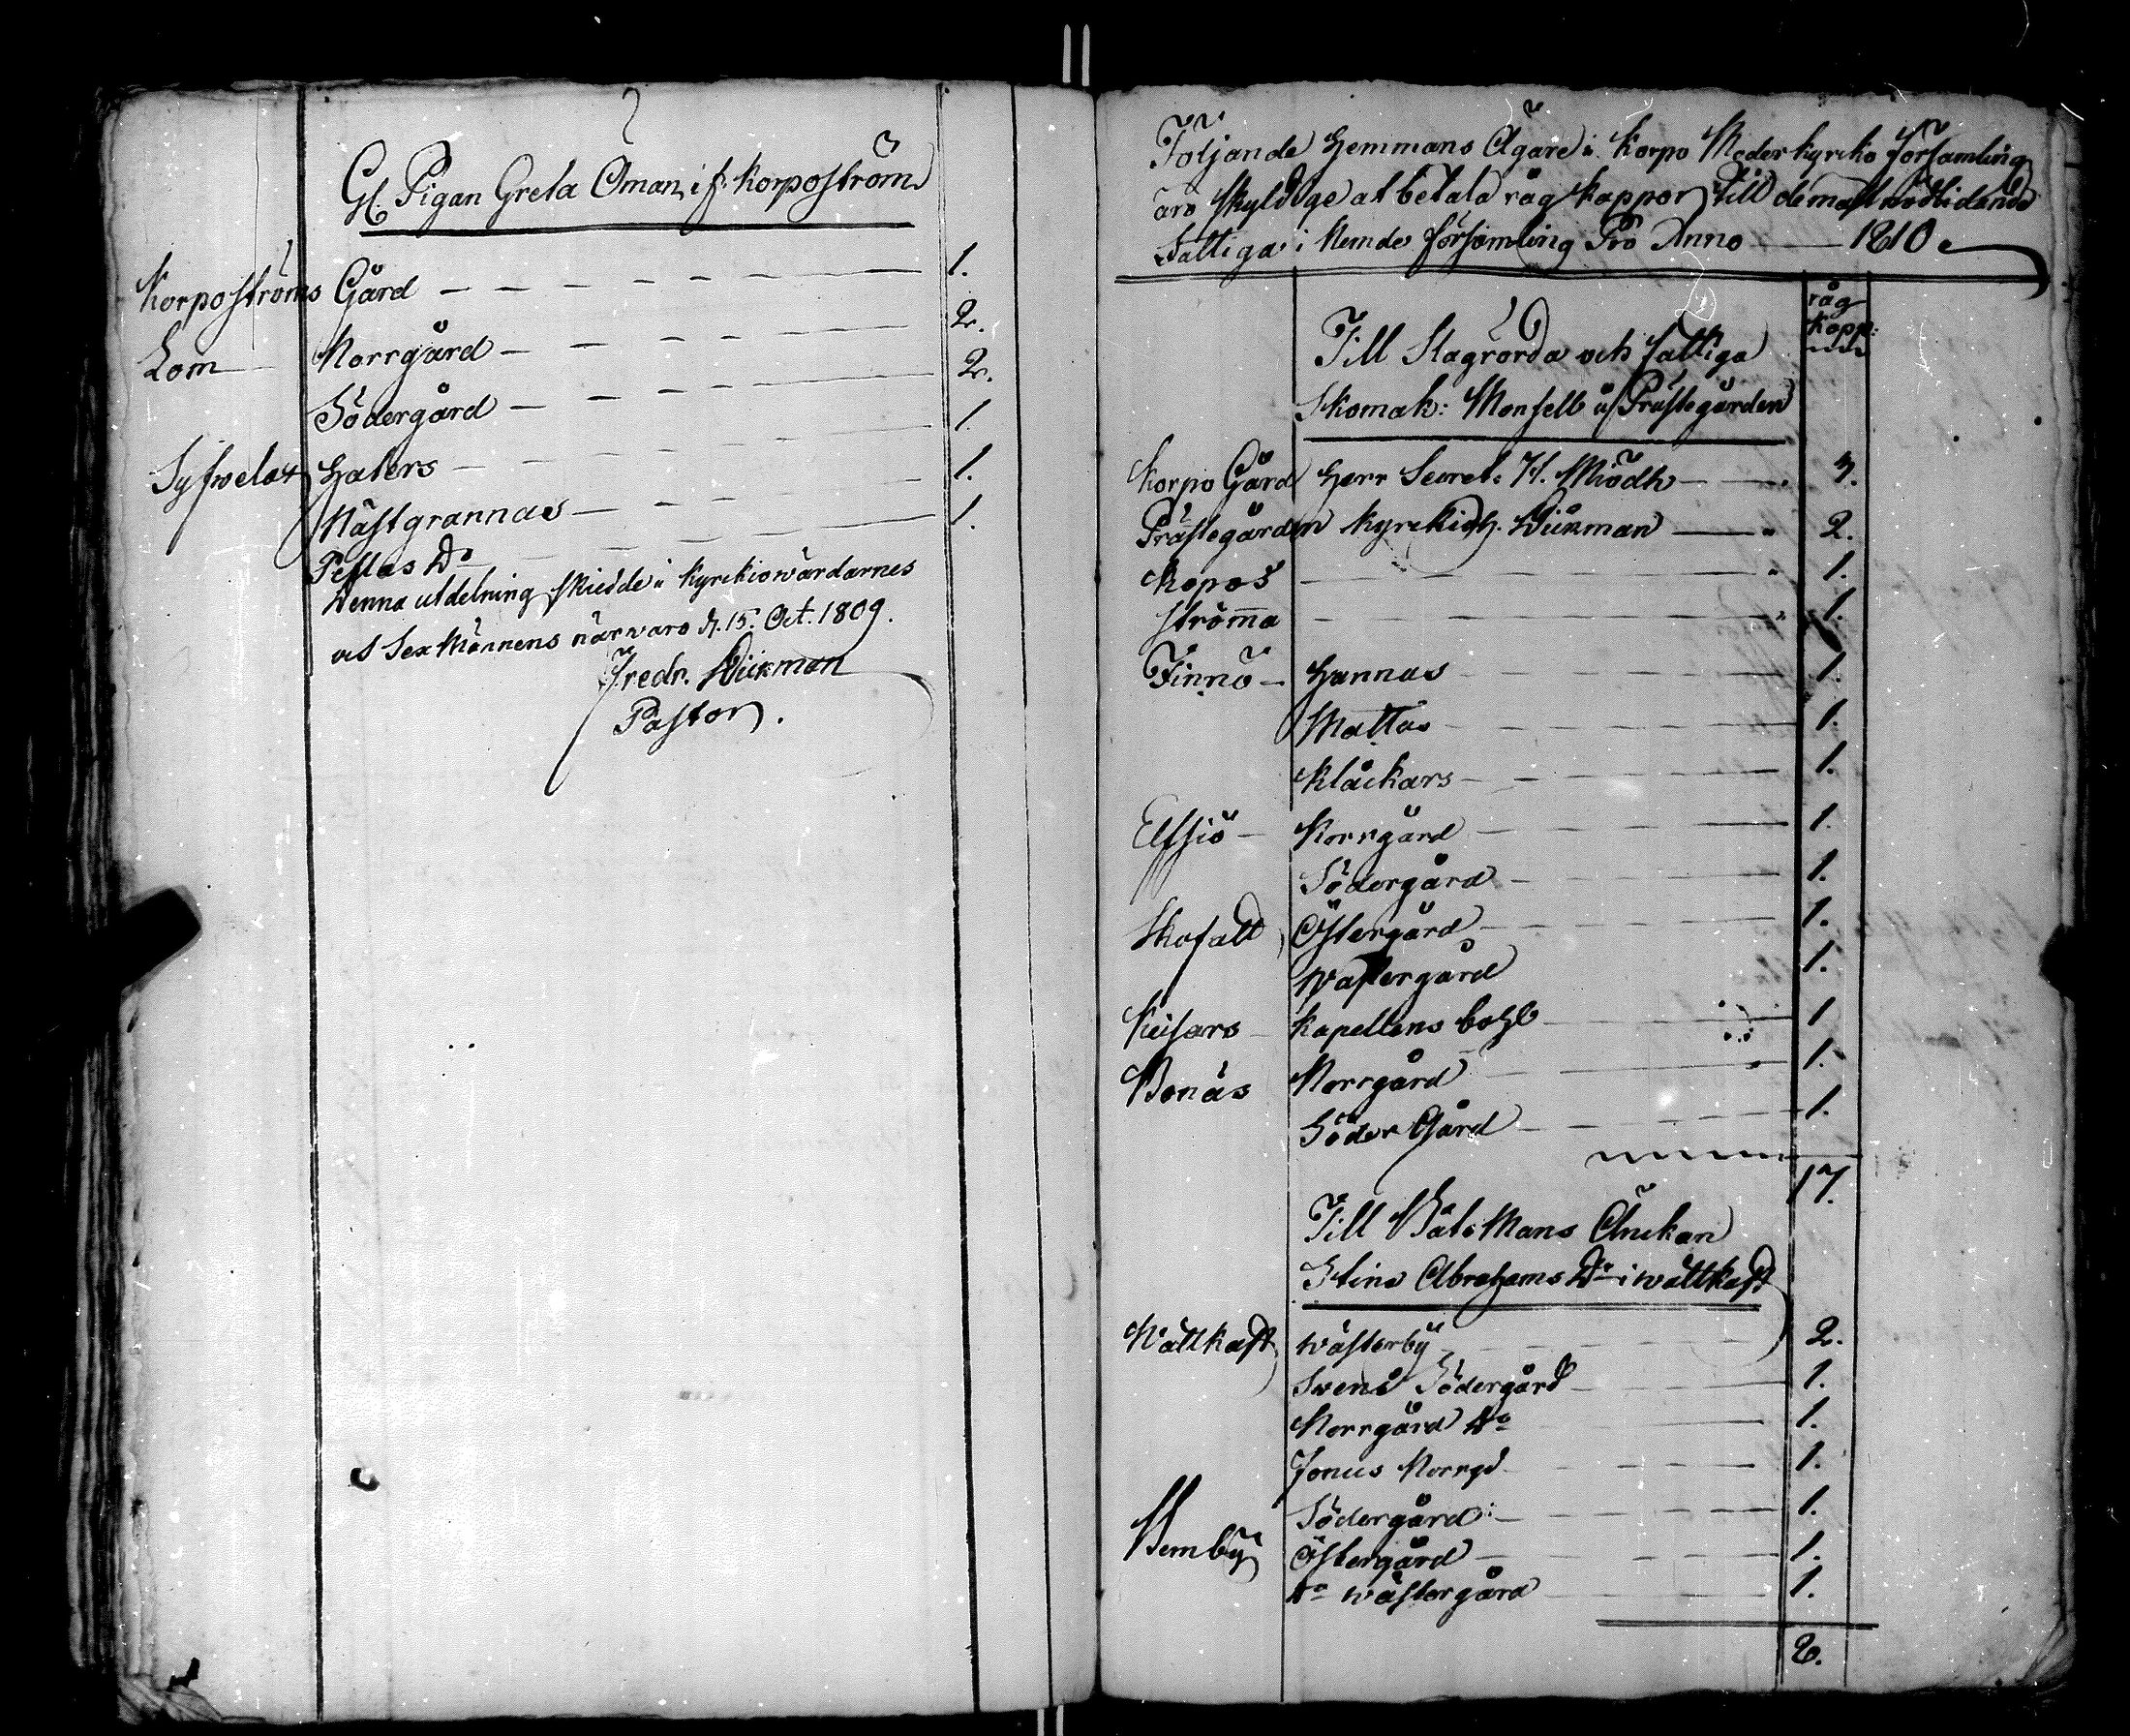 Gl. Pigan Greta Öman i f: Korpoström
Korpoströms Gård 1.
Lom Norrgård 2.
Södergård 2.
Syfwelax Haters 1.
Nästgrannas 1.
Peslas Do 1.
Denna utdelning skiedde i Kyrckiowärdarnes
och Sexmännens närvaro d. 15. Oct. 1809.
Fredr. Wickman
Pastor.
Följande Hemmans Ägare i Korpo Moder kyrcko församling
äro skyldige at betala råg kappor Till de mäst nödlidande
Fattiga i Nemde församling Pro Anno 1810.
råg
kapp:
Till Slagrörda och fattiga
Skomak: Monsell å Prästegården
Korpo Gård Herr Secret: H. Miödh 3.
Prästegården Kyrckioh. Wickman 2.
Kopos 1.
Ströma 1.
Finnö Hannas 1.
Mattas 1.
Klåckars 1.
Elfsiö Norrgård 1.
Södergård 1.
Skofalt Östergård 1.
Wästergård 1.
Keisars Kapellens bohl 1
Bonäs Norrgård 1.
Söder Gård 1.
17.
Till Båtsmans Änckan
Stina Abrahams Dr i Wattkast
Wattkast Wästerby 2.
Svens Södergård 1.
Norrgård Do 1.
Jonus Norrgd 1.
Södergård: 1.
Bemby Östergård 1.
Do Wästergård 1.
8.